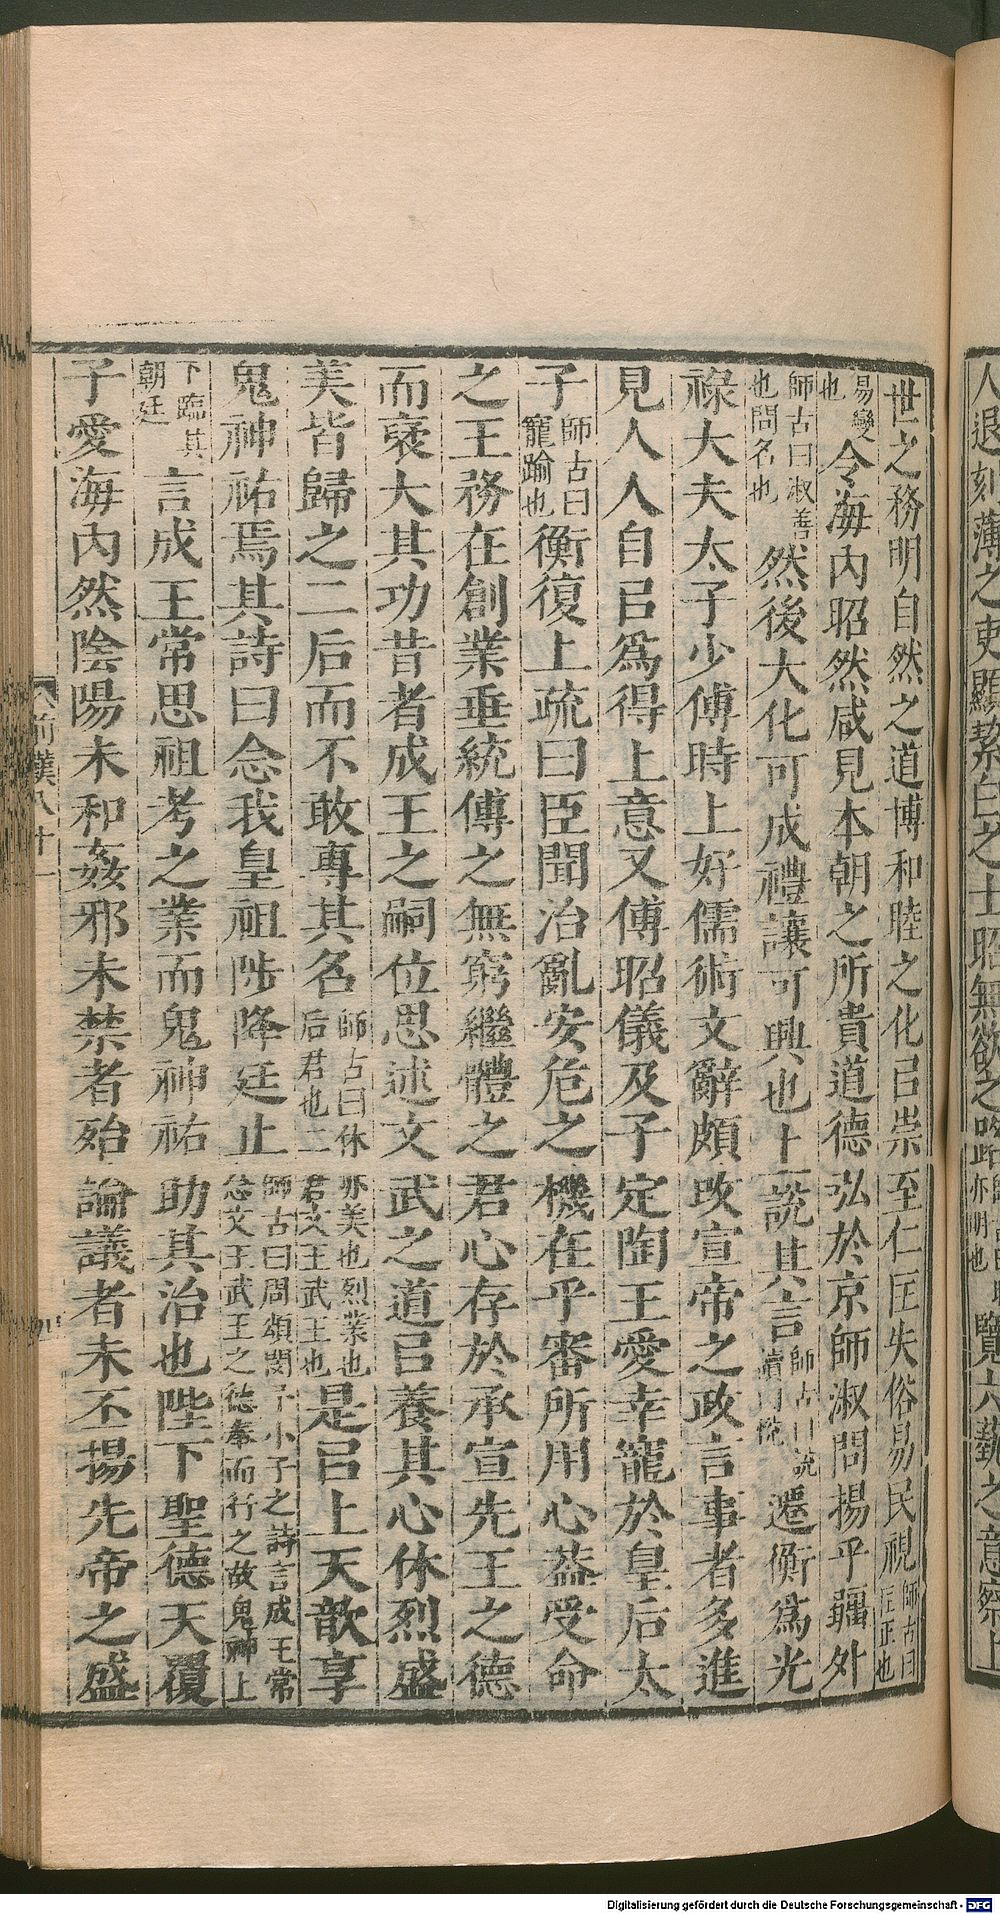 人退刻薄之吏顯絜白之士昭無欲之路覽六藝之意察上
世之務明自然之道博和睦之化㠯崇至仁匡失俗易民視師古曰匡正也
易變也令海內昭然咸見本朝之所貴道德弘於京師淑問揚乎疆外
師古曰淑善也問名也然後大化可成禮讓可興也上說其言師古曰說讀曰悅遷衡爲光
祿大夫太子少傅時上好儒術文辭頗改宣帝之政言事者多進
見人人自㠯爲得上意又傅昭儀及子定陶王愛幸寵於皇后太
子師古曰寵踰也衡復上疏曰臣聞治亂安危之機在乎審所用心葢受命
之王務在創業垂統傳之無窮繼體之君心存於承宣先王之德
而襃大其功昔者成王之嗣位思述文武之道㠯養其心休烈盛
美皆歸之二后而不敢專其名師古曰休亦美也烈業也后君也二君文王武王也是㠯上天歆享
鬼神祐焉其詩曰念我皇祖陟降廷止師古曰周頌閔予小子之詩言成王常念文王武王之德奉而行之故鬼神上
下臨其朝廷言成王常思祖考之業而鬼神祐助其治也陛下聖德天覆
子愛海內然陰陽未和姦邪未禁者殆論議者未丕揚先帝之盛
前漢八十一
四
Digitalisierung gefördert durch die Deutsche Forschungsgemeinschaft - DFG